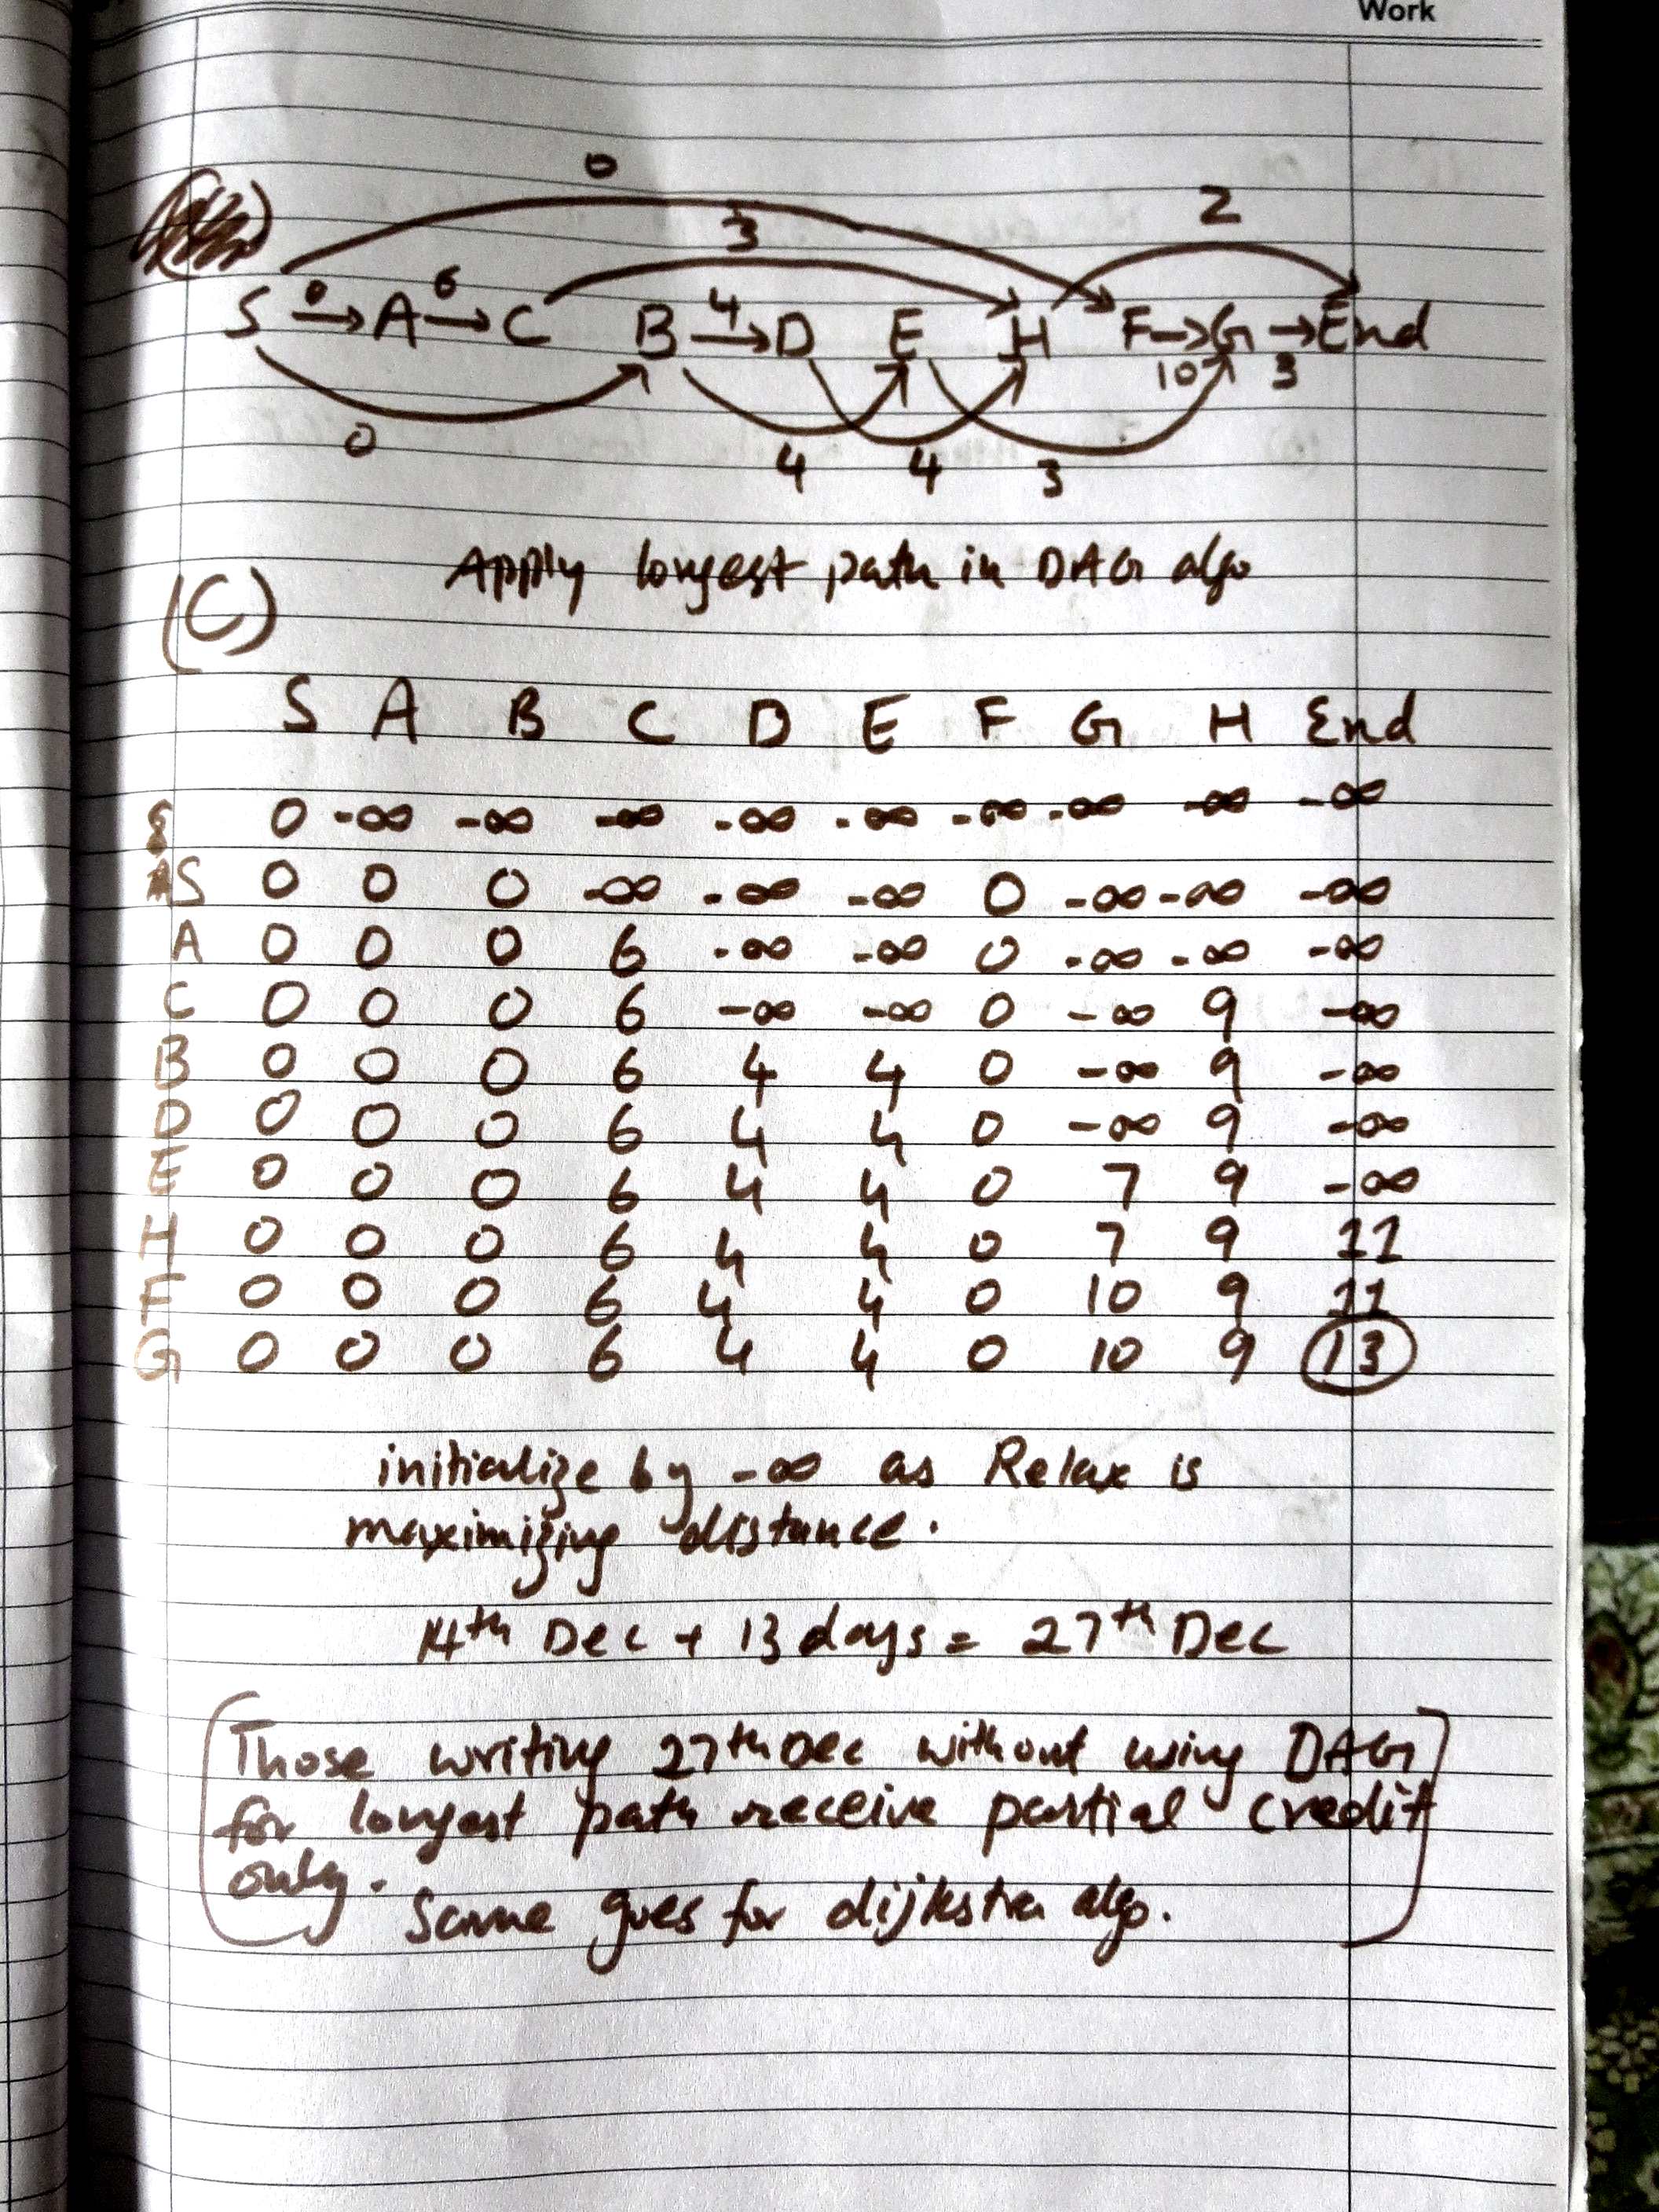 Work
0
3
2
S 0 → A 6 → C B 4 → D E H F → G → End
10 3
0 4 4 3
Apply longest path in DAG algo
(C)
S A B C D E F G H End
0 -∞ -∞ -∞ -∞ -∞ -∞ -∞ -∞ -∞
S 0 0 0 -∞ -∞ -∞ 0 -∞ -∞ -∞
A 0 0 0 6 -∞ -∞ 0 -∞ -∞ -∞
C 0 0 0 6 -∞ -∞ 0 -∞ 9 -∞
B 0 0 0 6 4 4 0 -∞ 9 -∞
D 0 0 0 6 4 4 0 -∞ 9 -∞
E 0 0 0 6 4 4 0 7 9 -∞
H 0 0 0 6 4 4 0 7 9 11
F 0 0 0 6 4 4 0 10 9 11
G 0 0 0 6 4 4 0 10 9 13
initialize by -∞ as Relax is
maximizing distance.
14th Dec + 13 days = 27th Dec
[Those writing 27th Dec without using DAG
for longest path receive partial credit
only.
Same goes for dijkstra algo.]